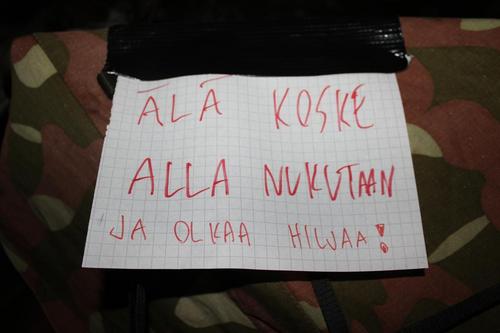 ÄLÄ KOSKE
ALLA NUKUTAAN
JA OLKAA HILJAA!